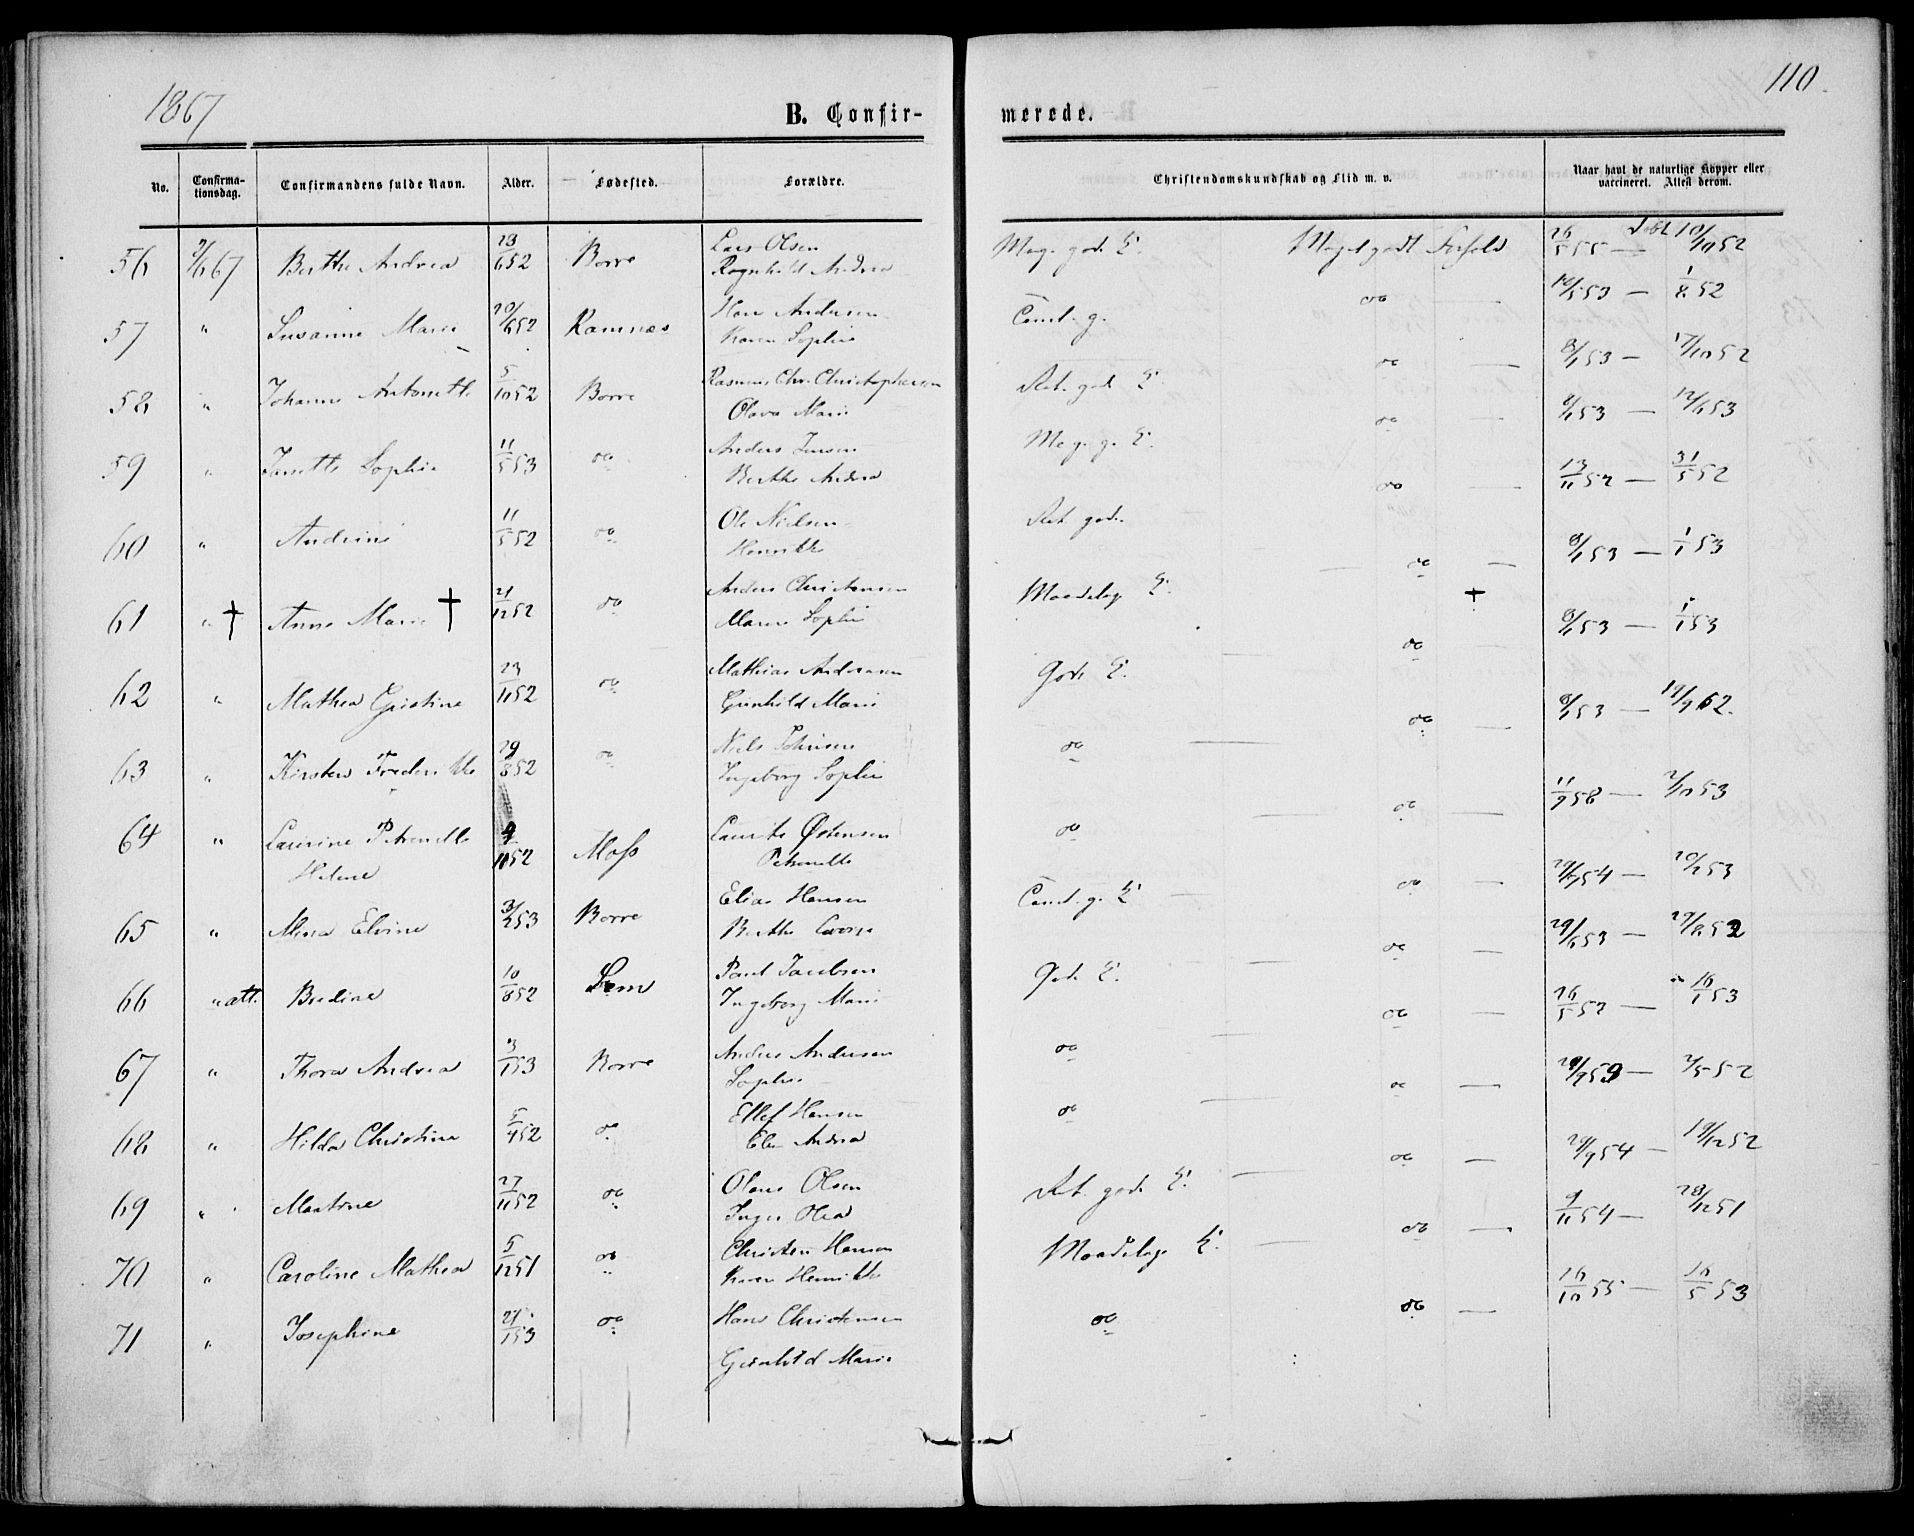 1867
B. Confir-
merede.
110
No.
Confirma-
tionsdag.
Confirmandens fulde Navn.
Alder.
Fødested.
Forældre.
Christendomskundskab og Flid m. v.
Naar havt de naturlige Kopper eller
vaccineret. Attest derom.
56 67 Berthe Andrea 23/6 52 Borre Lars Olsen Meg. god. Meget godt Forhold 26/5 55 — Døbt 10/10 52
Ragnhild Andrea
57 " Susanne Marie 20/6 52 Ramnæs Hans Andersen do — 53 — 1/8 52
Karen Sophie
58 " Johanne Antonette 5/10 52 Borre Rasmus Chr. Christophersen do — 8/1 53 — 17/10 52
Olava Marie
59 " Janette Sophie 11/5 53 do Anders Jensen Meg. g. do — 8/1 53 — 12/6 53
Berthe Andrea
60 " Andrine 11/5 52 do Ole Nielsen god. do — 13/11 52 — 31/5 52
Henrikke
61 " † Anne Marie † 21/12 52 do Anders Christensen Maadelig † do — 8/1 53 — 1/1 53
Maren Sophie
62 " Mathea Christine 23/11 52 do Mathias Andersen God do — 8/1 53 — 1/1 53
Gunhild Marie
63 " Kirsten Frederikke 29/8 52 do Niels Johnsen do — do — 8/1 53 — 19/9 62.
Ingeborg Sophie
64 " Laurine Petronelle 4/11 52 Moss Laurits Østensen do do — 11/9 58 — 2/10 53
Helene Petronelle
65 " Mina Elvine 3/2 53 Borre Elias Hansen do — 29/9 54 — 20/2 53
Berthe
66 " att. Bredine 10/8 52 Sem Paul Jacobsen God. do — 29/6 53 — 29/8 52
Ingeborg Marie
67 " Thora Andrea 3/1 53 Borre Anders Andersen do do — 26/5 52 — 16/1 53
Sophie
68 " Hilda Christine 5/4 52 do Ellef Hansen do do — 59 — 2/5 52
Andrea
69 " Martine 27/11 52 do Olaus Olsen god. do — 29/9 54 — 19/12 52
Inger Olea
70 " Caroline Mathea 5/12 51 do Christen Hansen Maadelig do — 9/11 54 — 28/12 51
Karen Henrikke
71 " Josephine 21/1 53 do Hans Christensen do do — 16/10 55 — 16/5 53
Gunhild Marie